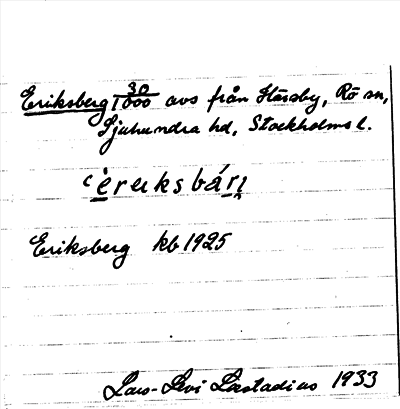 Eriksberg 30/1000 avs från Härsby, Rö sn,
Sjuhundra hd, Stockholms l.
Eriksberg kb 1925
Lars-Levi Læstadius 1933